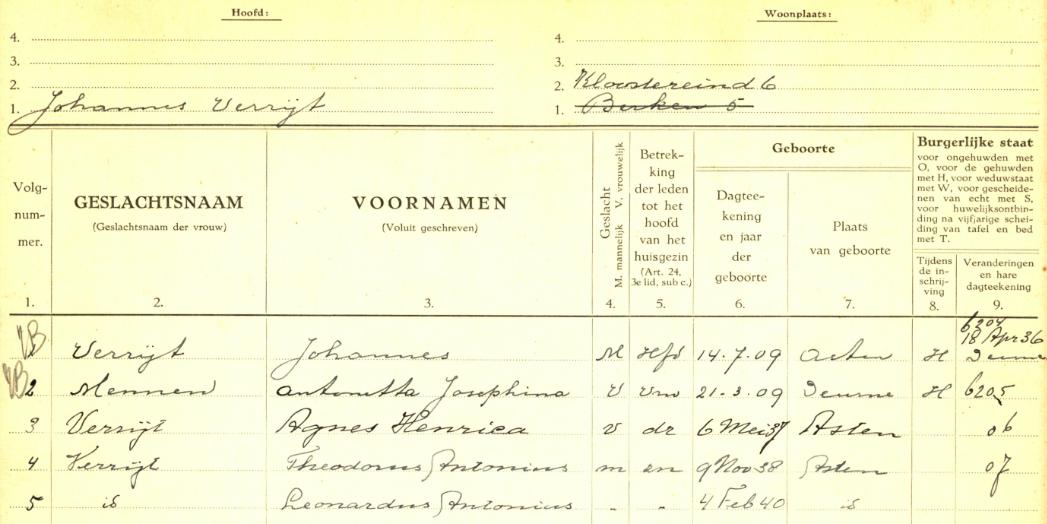 Hoofd: Woonplaats:
4. 4.
3. 3.
2. 2. Kloostereind 6
1. Johannes Verrijt 1. Berken 5
Volg-
num-
mer.
1.
GESLACHTSNAAM
(Geslachtsnaam der vrouw)
2.
VOORNAMEN
(Voluit geschreven)
3.
Geslacht
M. mannelijk V. vrouwelijk
4.
Betrek-
king
der leden
tot het
hoofd
van het
huisgezin
(Art. 24,
3e lid, sub c.)
5.
Geboorte
Dagtee-
kening
en jaar
der
geboorte
6.
Plaats
van geboorte
7.
Burgerlijke staat
voor ongehuwden met
O, voor de gehuwden
met H, voor weduwstaat
met W, voor gescheide-
nen van echt met S,
voor huwelijksontbin-
ding na vijfjarige schei-
ding van tafel en bed
met T.
Tijdens
de in-
schrij-
ving
8.
Veranderingen
en hare
dagteekening
9.
6204
18 Apr 36
Verrijt Johannes M Hfd 14.7.09 Asten H Deurne
2 Mennen Antonetta Josephina V Vrw 21.3.09 Deurne H 6205
3 Verrijt Agnes Henrica v dr 6 Mei 37 Asten 06
4 Verrijt Theodorus Antonius m zn 9 Nov 38 Asten 07
5 id Leonardus Antonius " " 4 Feb 40 id